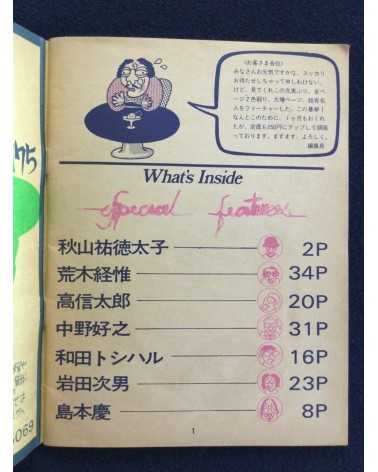 〈お客さま各位〉
みなさんお元気ですかな。スッカリ
お待たせしちゃって申しわけない。
けど、見てくれこの充実ぶり。全ペ
ージ2色刷り、大増ページ、超有名
人をフィーチャーした、この豪華！
なんとこのために、1ヵ月もおくれ
たが、定価も250円にアップして頑張
っております。ますます、よろしく。
編集長
75
What's Inside
Special features
秋山祐徳太子 2P
荒木経惟 34P
高信太郎 20P
中野好之 31P
和田トシハル 16P
岩田次男 23P
島本慶 8P
069
1